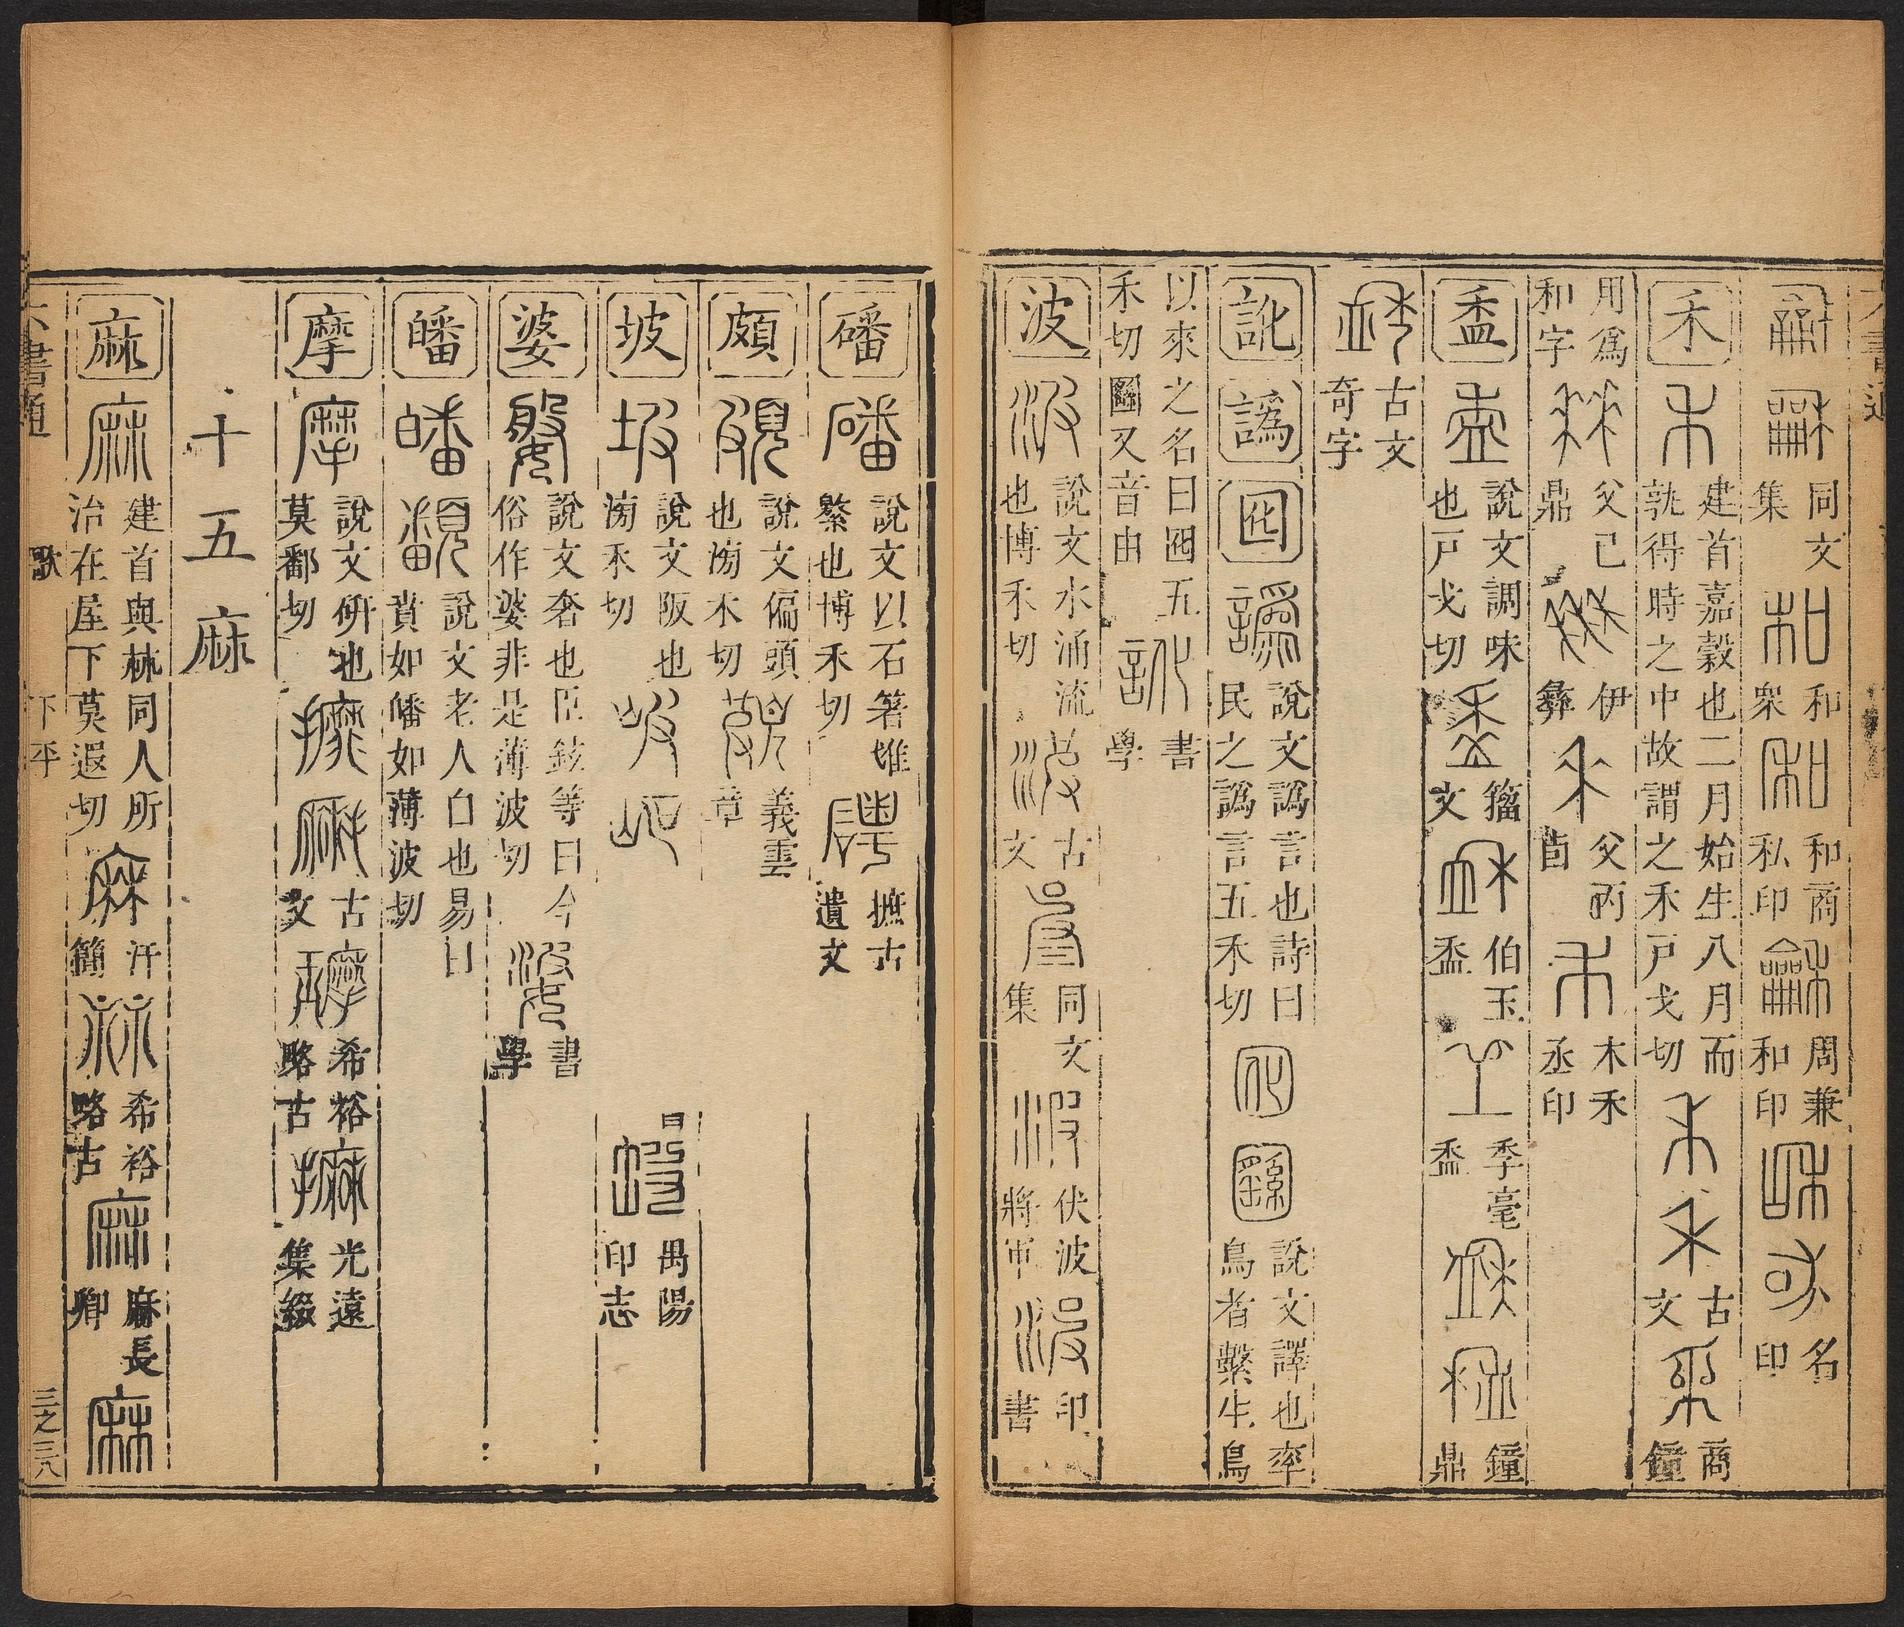 同文集 和眾 和商私印 周兼和印 名印
禾 建首嘉穀也二月始生八月而孰得時之中故謂之禾戶戈切 古文 商鐘
用爲和字 父己鼎 伊彝 父丙卣 木禾丞印
盉 說文調味也戶戈切 籀文 伯玉盉 季亳盉 鐘鼎
古文奇字
訛 譌 囮 說文譌言也詩曰民之譌言五禾切 說文譯也率鳥者繫生鳥
以來之名曰囮五禾切 又音由 書學
波 說文水涌流也博禾切 古文 同文集 伏波將軍 印書
磻 說文以石箸堆繁也博禾切 摭古遺文
頗 說文偏頭也滂禾切 義雲章
坡 說文阪也滂禾切 禺陽印志
婆 說文奢也臣鉉等曰今俗作婆非是薄波切 書學
皤 說文老人白也易曰賁如皤如薄波切
摩 說文研也莫鄱切 古文 希裕略古 光遠集綴
十五麻
麻 建首與𣏟同人所治在屋下莫遐切 汗簡 希裕略古 麻長卿
六書通 歌 下平 三之三八